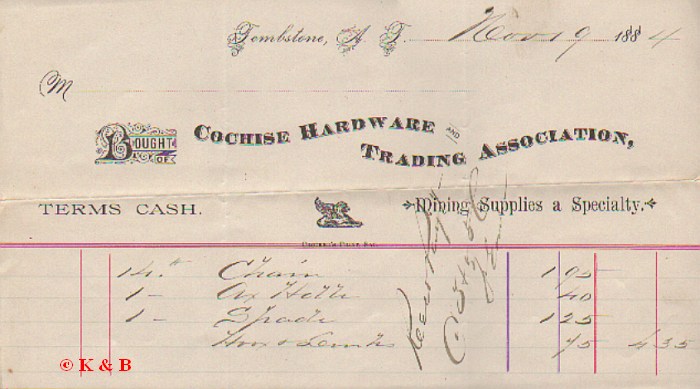 Tombstone, A. T. Nov 19 1884
M
BOUGHT OF
COCHISE HARDWARE AND
TRADING ASSOCIATION,
TERMS CASH.
Mining Supplies a Specialty.
14 # Chain 1 95
1 - Ax Hdle 40
1 - Spade 1 25
75 4 35
© K & B